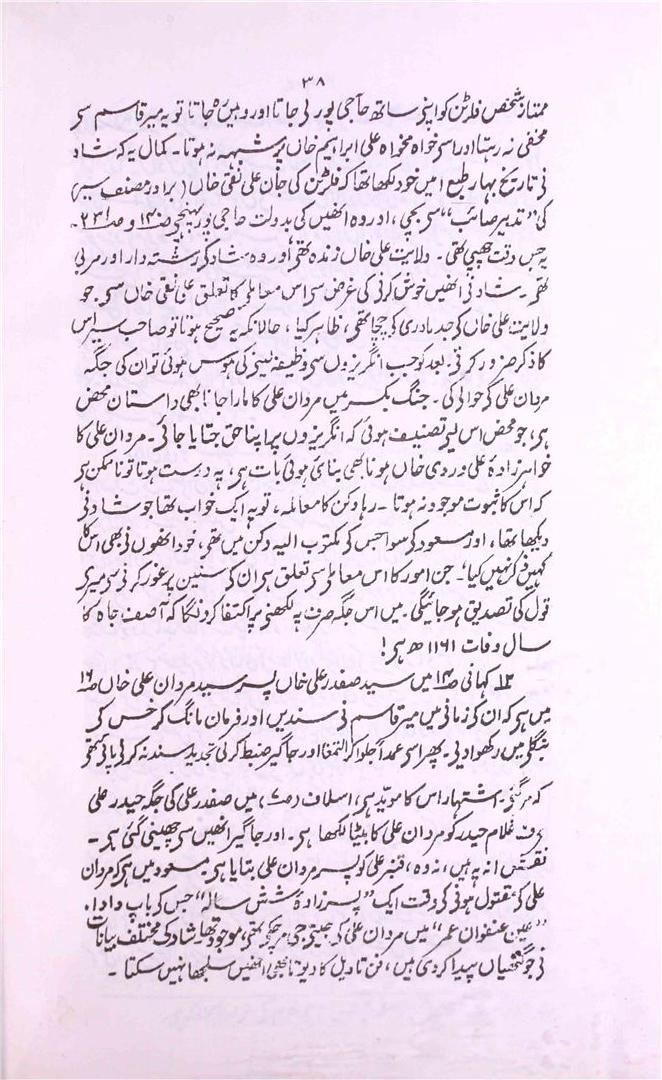 ۳۸
ممتاز شخص فلرٹن کو اپنے ساتھ حاجی پور لے جاتا اور وہیں رہ جاتا تو یہ میر قاسم سے
مخفی نہ رہتا اور اسے خواہ مخواہ علی ابراہیم خاں پر شبہہ نہ ہوتا۔ کمال یہ کہ شاد
نے تاریخ بہار طبع ا میں خود لکھا تھا کہ فلرٹن کی جان علی نقی خاں (برادر مصنف سیر)
کی "تدبیر صائب" سے بچی، اور وہ انھیں کی بدولت حاجی پور پہنچے ص۱۴۰ و ص۲۳۱۔
یہ جس وقت چھپی تھی۔ ولایت علی خاں زندہ تھے اور وہ شاد کے رشتہ دار اور مربی
تھے۔ شاد نے انھیں خوش کرنے کی غرض سے اس معاملے کا تعلق علی نقی خاں سے۔ جو
ولایت علی خاں کے جد مادری کے چچا تھے، ظاہر کیا، حالانکہ یہ صحیح ہوتا تو صاحب سیر اس
کا ذکر ضرور کرتے۔ بعد کو جب انگریزوں سے وظیفہ لینے کی ہوس ہوئی تو ان کی جگہ
مردان علی کے حوالے کی۔ جنگ بکسر میں مردان علی کا مارا جانا بھی داستان محض
ہے، جو محض اس لیے تصنیف ہوئی کہ انگریزوں پر اپنا حق جتایا جائے۔ مردان علی کا
خواہر زادۂ علی وردی خاں ہونا بھی بنائی ہوئی بات ہے، یہ درست ہوتا تو ناممکن ہے
کہ اس کا ثبوت موجود نہ ہوتا۔ رہا دکن کا معاملہ، تو یہ ایک خواب تھا جو شاد نے
دیکھا تھا، اور مسعود کے سوا جس کے مکتوب الیہ دکن میں تھے، خود انھوں نے بھی اس کا
کہیں ذکر نہیں کیا۔ جن امور کا اس معاملے سے تعلق ہے ان کے سنین پر غور کرنے سے میرے
قول کی تصدیق ہو جائیگی۔ میں اس جگہ صرف یہ لکھنے پر اکتفا کرونگا کہ آصف جاہ کا
سال وفات ۱۱۶۱ ھ ہے!
۱۲ کہانی ص۱۴ میں سید صفدر علی خاں پسر سید مردان علی خاں ص۱۶
میں ہے کہ ان کے زمانے میں میر قاسم نے سندیں اور فرمان مانگ کر خس کے
بنگلے میں رکھوا دیے۔ پھر اسے عمداً جلوا کر التمغا اور جاگیر ضبط کر لی تجدید سند نہ کرنے پائے تھے
کہ مر گئے۔ اشتہار اس کا موید ہے، اسلاف (ص۷) میں صفدر علی کی جگہ حیدر علی
عرف غلام حیدر کو مردان علی کا بیٹا لکھا ہے۔ اور جاگیر انھیں سے چھینی گئی ہے۔
نقشے ا نہ یہ ہیں، نہ وہ، قنبر علی کو پسر مردان علی بتایا ہے۔ مسعود میں ہے کہ مردان
علی کے مقتول ہونے کے وقت ایک "پسر زادۂ شش سالہ" جس کے باپ دادا،
"عین عنفوان عمر" میں مردان علی کے جیتے جی مر چکے تھے، موجود تھا۔ شاد کے مختلف بیانات
نے جو گتھیاں پیدا کر دی ہیں، فن تاویل کا دیوتا بھی انھیں سلجھا نہیں سکتا۔